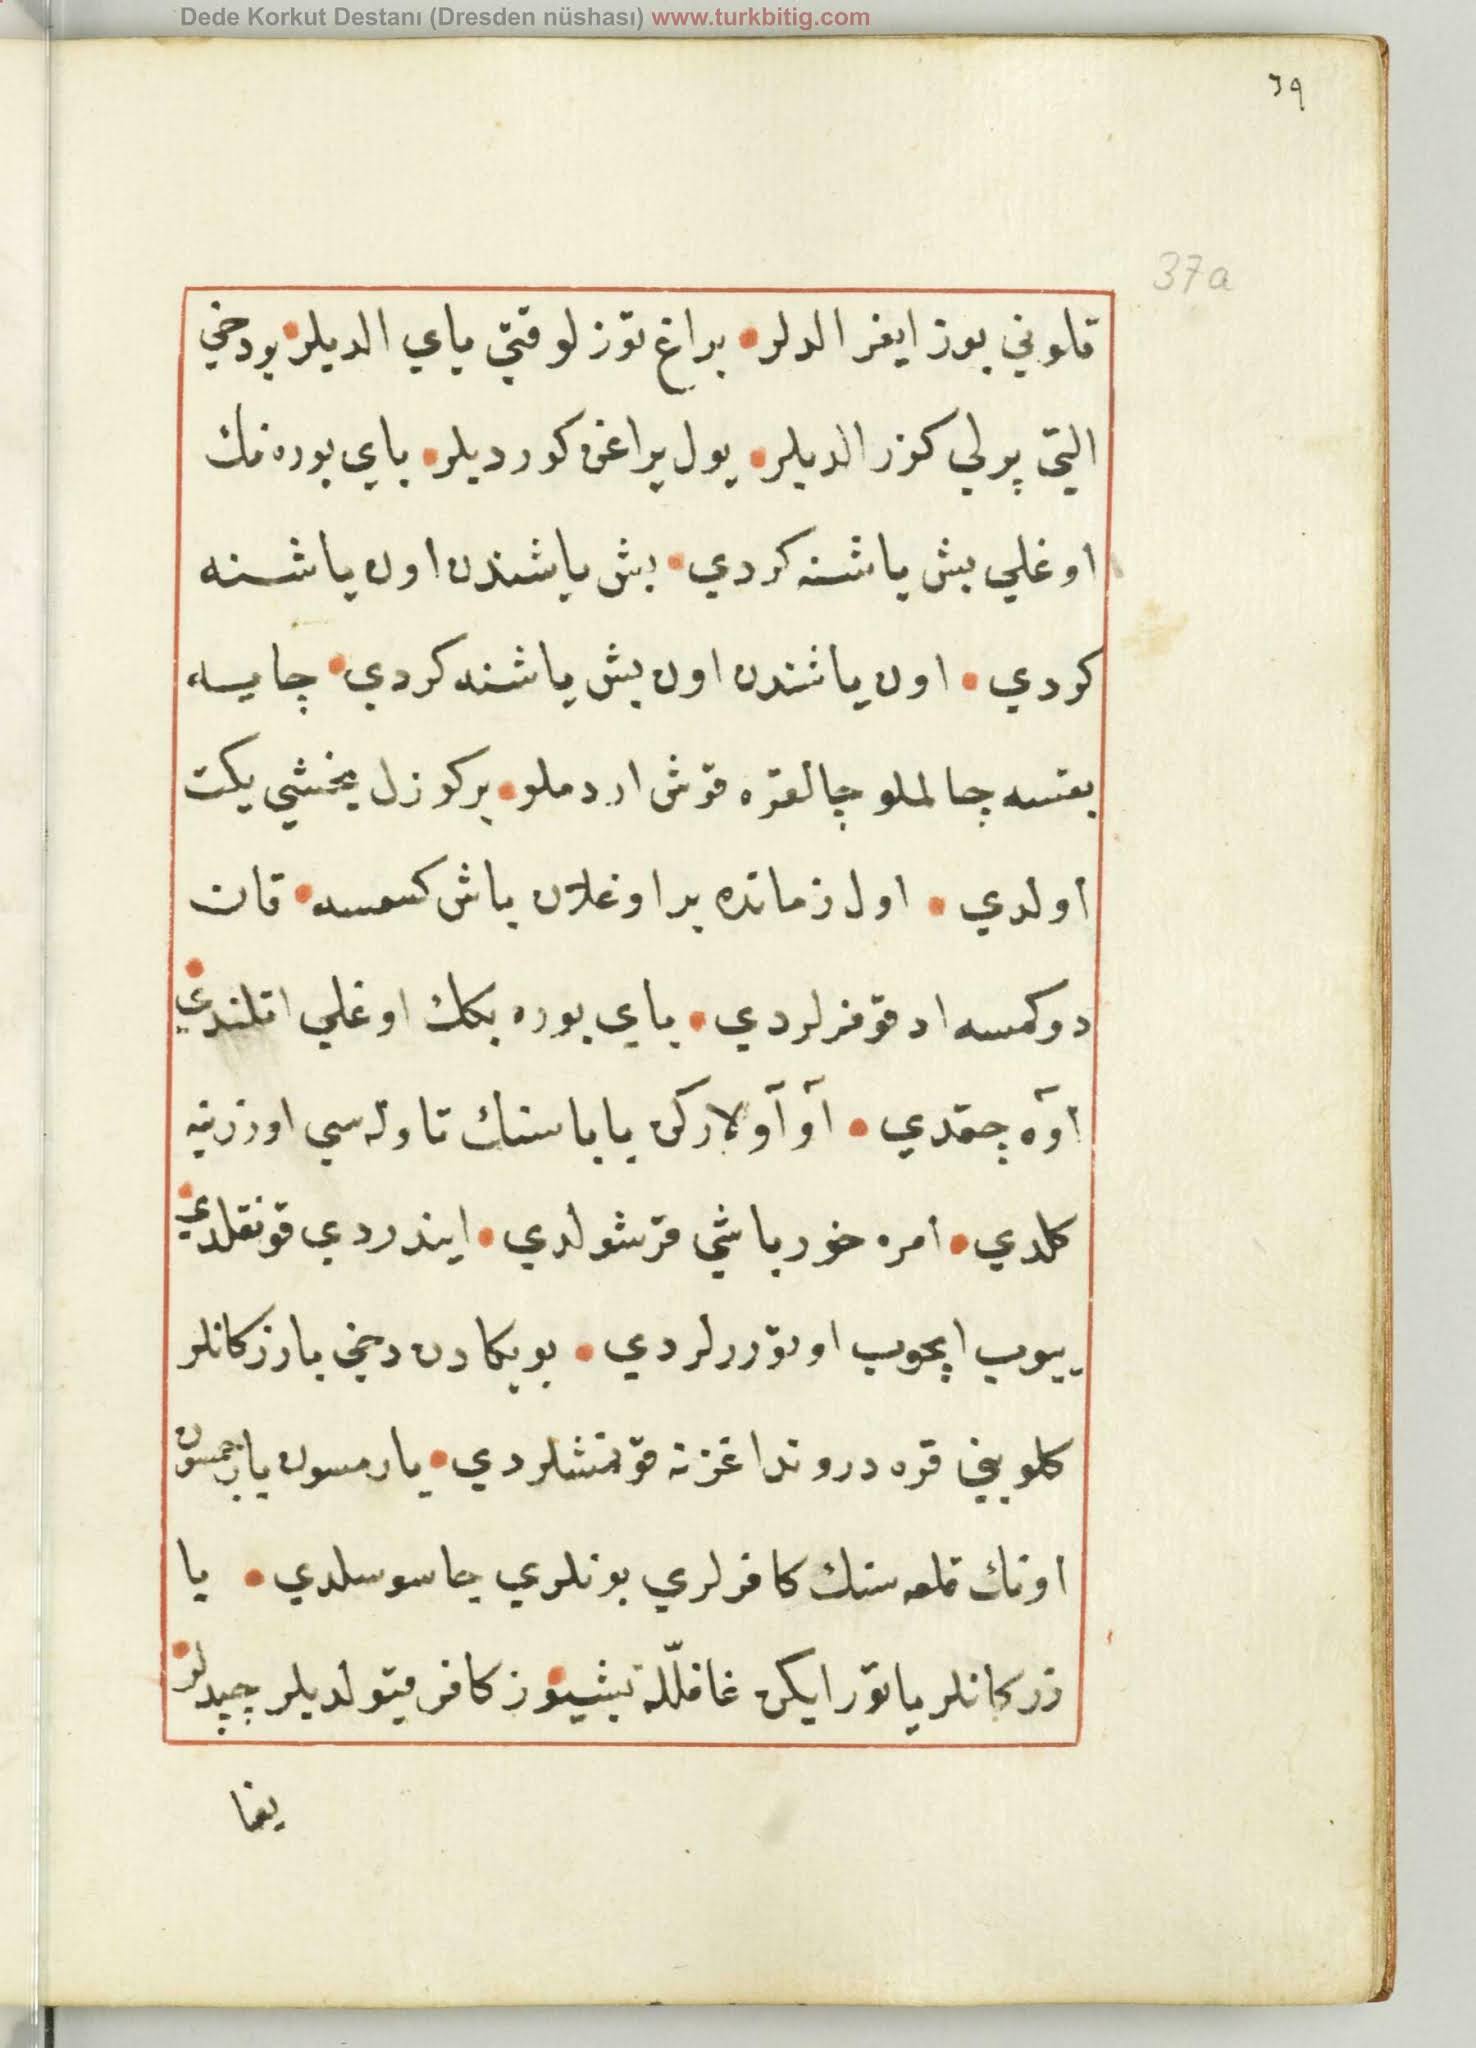 Dede Korkut Destanı (Dresden nüshası) www.turkbitig.com
٦٩
37a
قلوني بوز ايغر الدلر • براغ توزلو قتي ياي الديلر • بو دخي
التي پرلي كوز الديلر • يول يراغن كورديلر • باي بوره نك
اوغلي بش ياشنه كردي • بش ياشندن اون ياشنه
كردي • اون ياشندن اون بش ياشنه كردي • چايسه
بقسه چالملو چالقره قوش اردملو • بر كوزل يخشي يكت
اولدي • اول زمانده بر اوغلان باش كسمسه • قان
دوكمسه اد قومزلردي • باي بوره بكك اوغلي اتلندي •
آوه چقدي • آو آولاركن باباسنك تاوله سي اوزرينه
كلدي • امره خور باشي قرشولدي • ايندردي قونقلدي •
ييوب ايچوب اوتوررلردي • بو يكادن دخي بازركانلر
كلوبني قره دروند اغزنه قونمشلردي • يارمسون يارچمسون
اونك قلعه سنك كافرلري بونلري جاسوسلدي • يا
زركانلر ياتور ايكن غافلله بشيوز كافر قيتولديلر چپدلر •
يغما